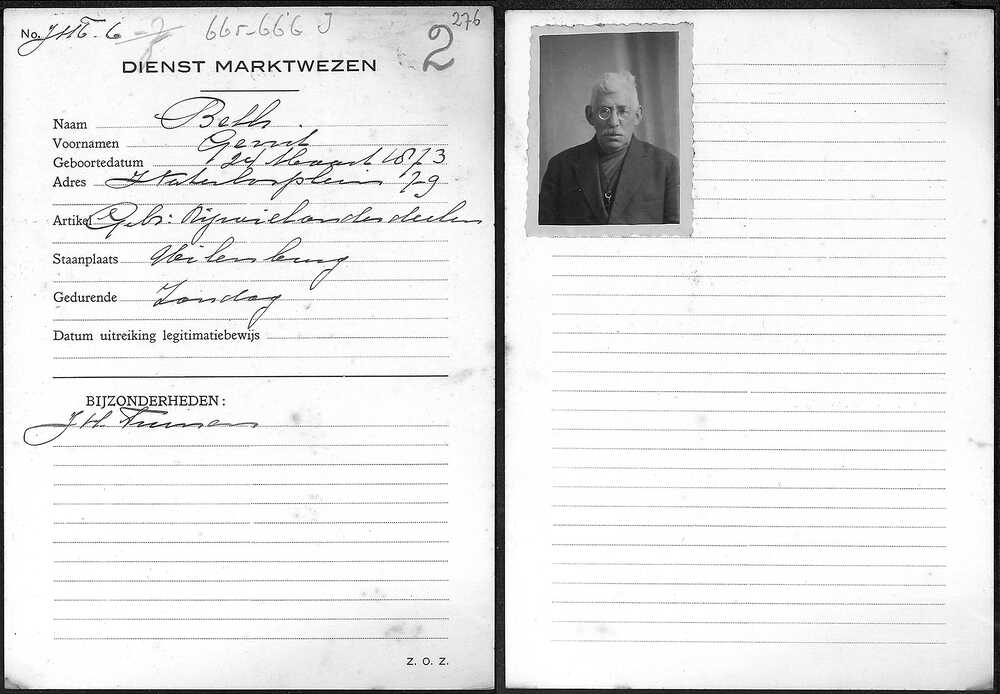 276
No. 665-666 J
2
DIENST MARKTWEZEN
Naam Beth.
Voornamen Gerrit
Geboortedatum 24 Maart 1873
Adres Waterlooplein 79
Artikel Gebr: Rijwielonderdeelen
Staanplaats Uilenburg
Gedurende Zondag
Datum uitreiking legitimatiebewijs
BIJZONDERHEDEN:
J H.
Z. O. Z.